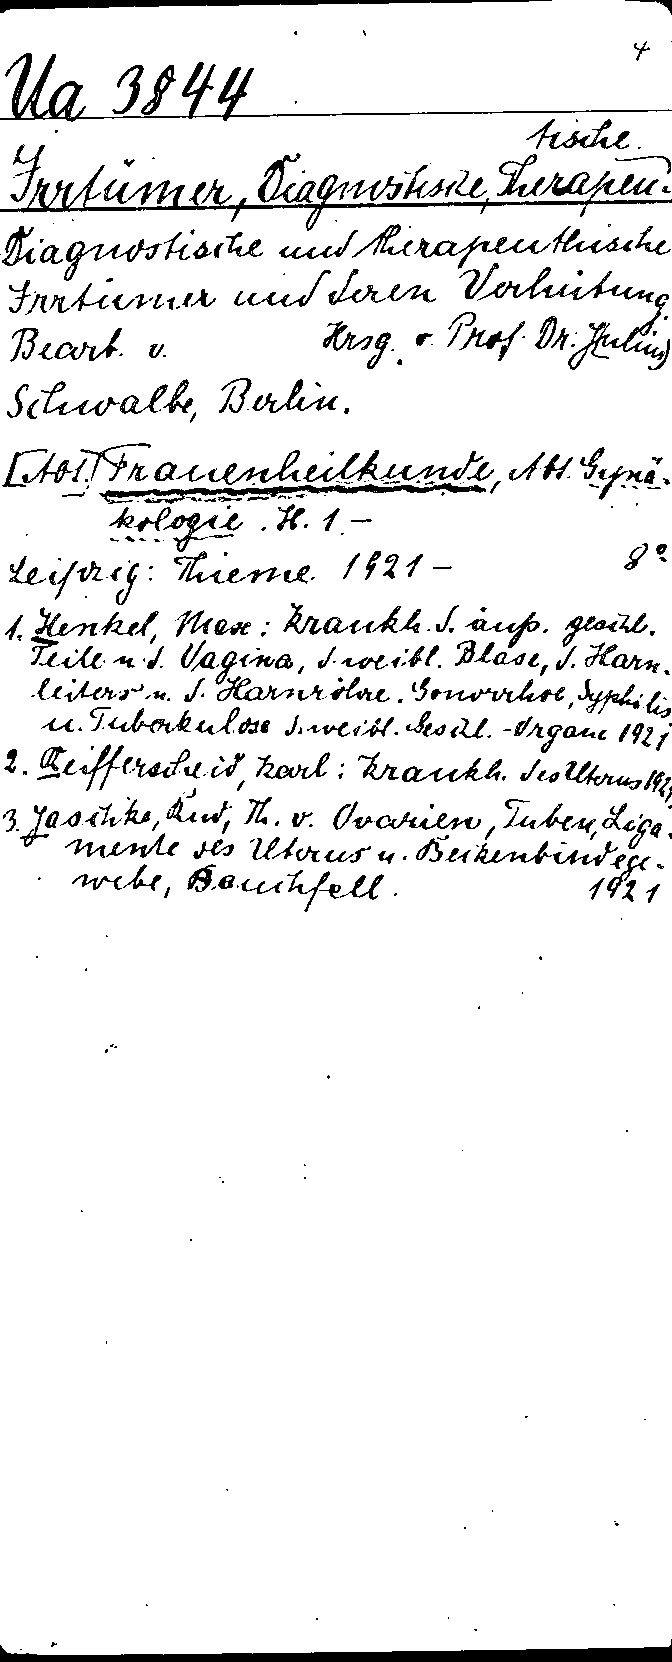 4
Ua 3844
tische.
Irrtümer, Diagnostische, Therapeu-
Diagnostische und therapeuthische
Irrtümer und deren Verhütung.
Bearb. v. Hrsg. v. Prof. Dr. Julius
Schwalbe, Berlin.
[Abt.] Frauenheilkunde, Abt. Gynä-
kologie. H. 1. –
Leipzig: Thieme. 1921 – 8°
1. Henkel, Max: Krankh. d. äuß. geschl.
Teile u. d. Vagina, d. weibl. Blase, d. Harn-
leiters u. d. Harnröhre. Gonorrhoe, Syphilis
u. Tuberkulose d. weibl. Geschl.-Organe 1921
2. Reifferscheid, Karl: Krankh. des Uterus 1921
3. Jaschke, Rud, Th. v. Ovarien, Tuben, Liga-
mente des Uterus u. Beckenbindege-
webe, Bauchfell. 1921